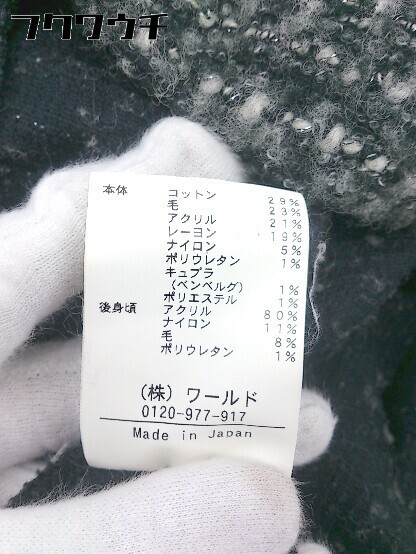 フクワウチ
本体 コットン 29%
毛 23%
アクリル 21%
レーヨン 19%
ナイロン 5%
ポリウレタン 1%
キュプラ
(ベンベルグ) 1%
ポリエステル 1%
後身頃 アクリル 80%
ナイロン 11%
毛 8%
ポリウレタン 1%
(株) ワールド
0120-977-917
Made in Japan